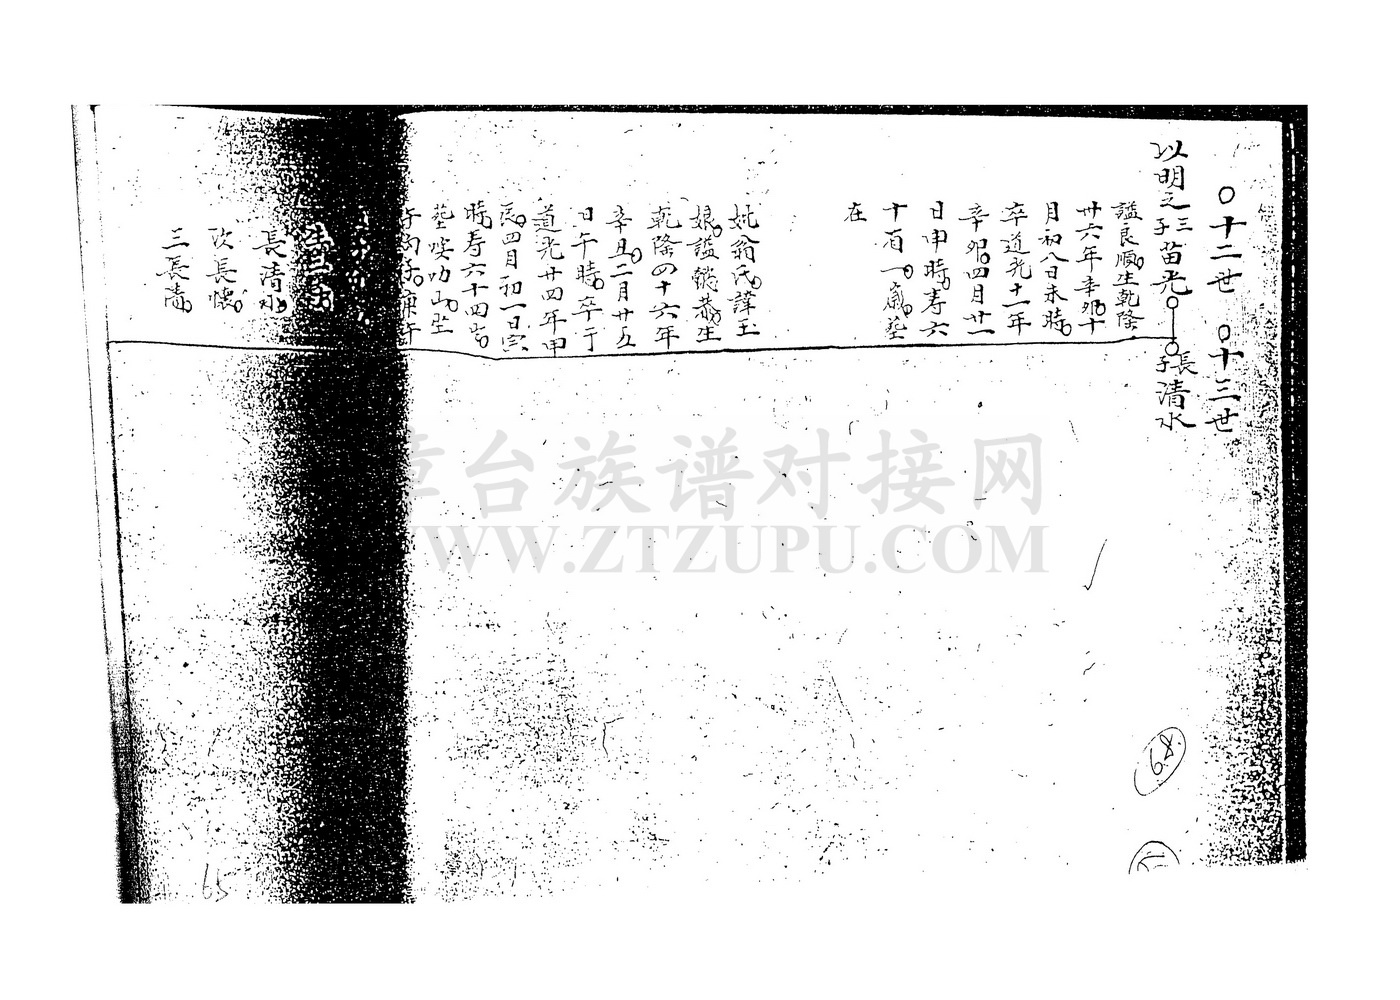 ○十二世 ○十三世
以明之三子苗光 長子清水
謚良順生乾隆
卅六年辛卯十
月初八日未時
卒道光十一年
辛卯四月廿一
日申時寿六
十有一歲塟
在
妣翁氏諱玉
娘謚慈恭生
乾隆四十六年
辛丑二月廿五
日午時卒于
道光廿四年甲
辰四月初一日寅
時寿六十四岁
塟唉叻山坐
午向子庚午
生三子
長清水
次長懷
三長清
章台族谱对接网
WWW.ZTZUPU.COM
68
65